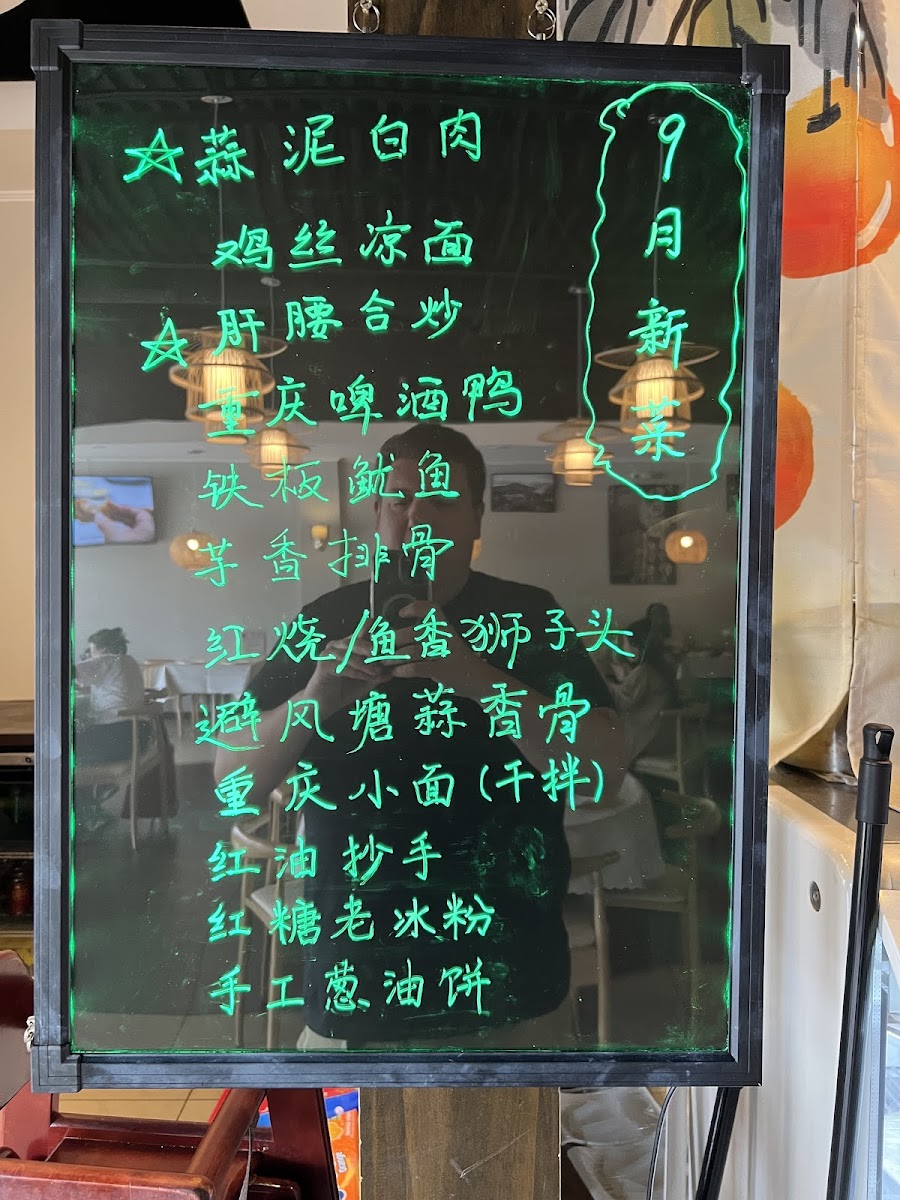 9月新菜
☆蒜泥白肉
鸡丝凉面
☆肝腰合炒
重庆啤酒鸭
铁板鱿鱼
芋香排骨
红烧/鱼香狮子头
避风塘蒜香骨
重庆小面(干拌)
红油抄手
红糖老冰粉
手工葱油饼